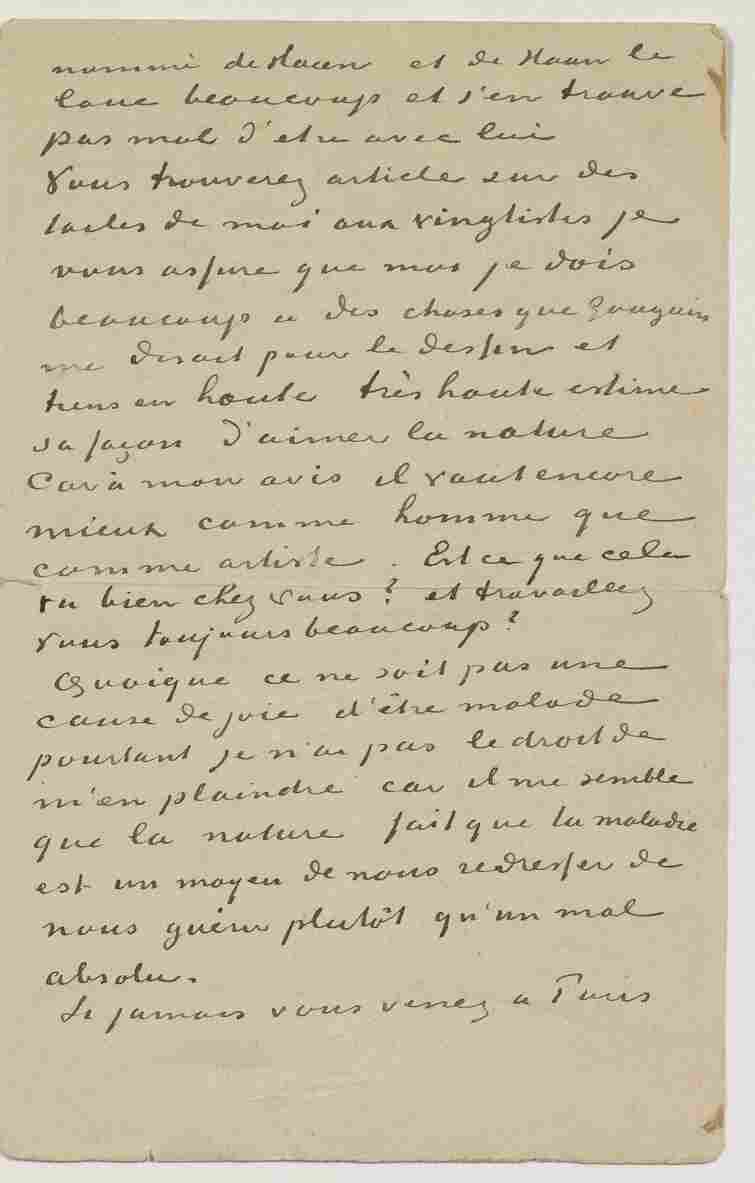 nommé de Haan et de Haan le
loue beaucoup et s'en trouve
pas mal d'etre avec lui
Vous trouverez article sur des
toiles de moi aux vingtistes je
vous assure que moi je dois
beaucoup a des choses que Gauguin
me disait pour le dessin et
tiens en haute très haute estime
sa façon d'aimer la nature
Car à mon avis il vaut encore
mieux comme homme que
comme artiste. Est ce que cela
va bien chez vous? et travaillez
vous toujours beaucoup?
Quoique ce ne soit pas une
cause de joie d'être malade
pourtant je n'ai pas le droit de
m'en plaindre car il me semble
que la nature fait que la maladie
est un moyen de nous redresser de
nous guérir plutôt qu'un mal
absolu.
Si jamais vous venez a Paris